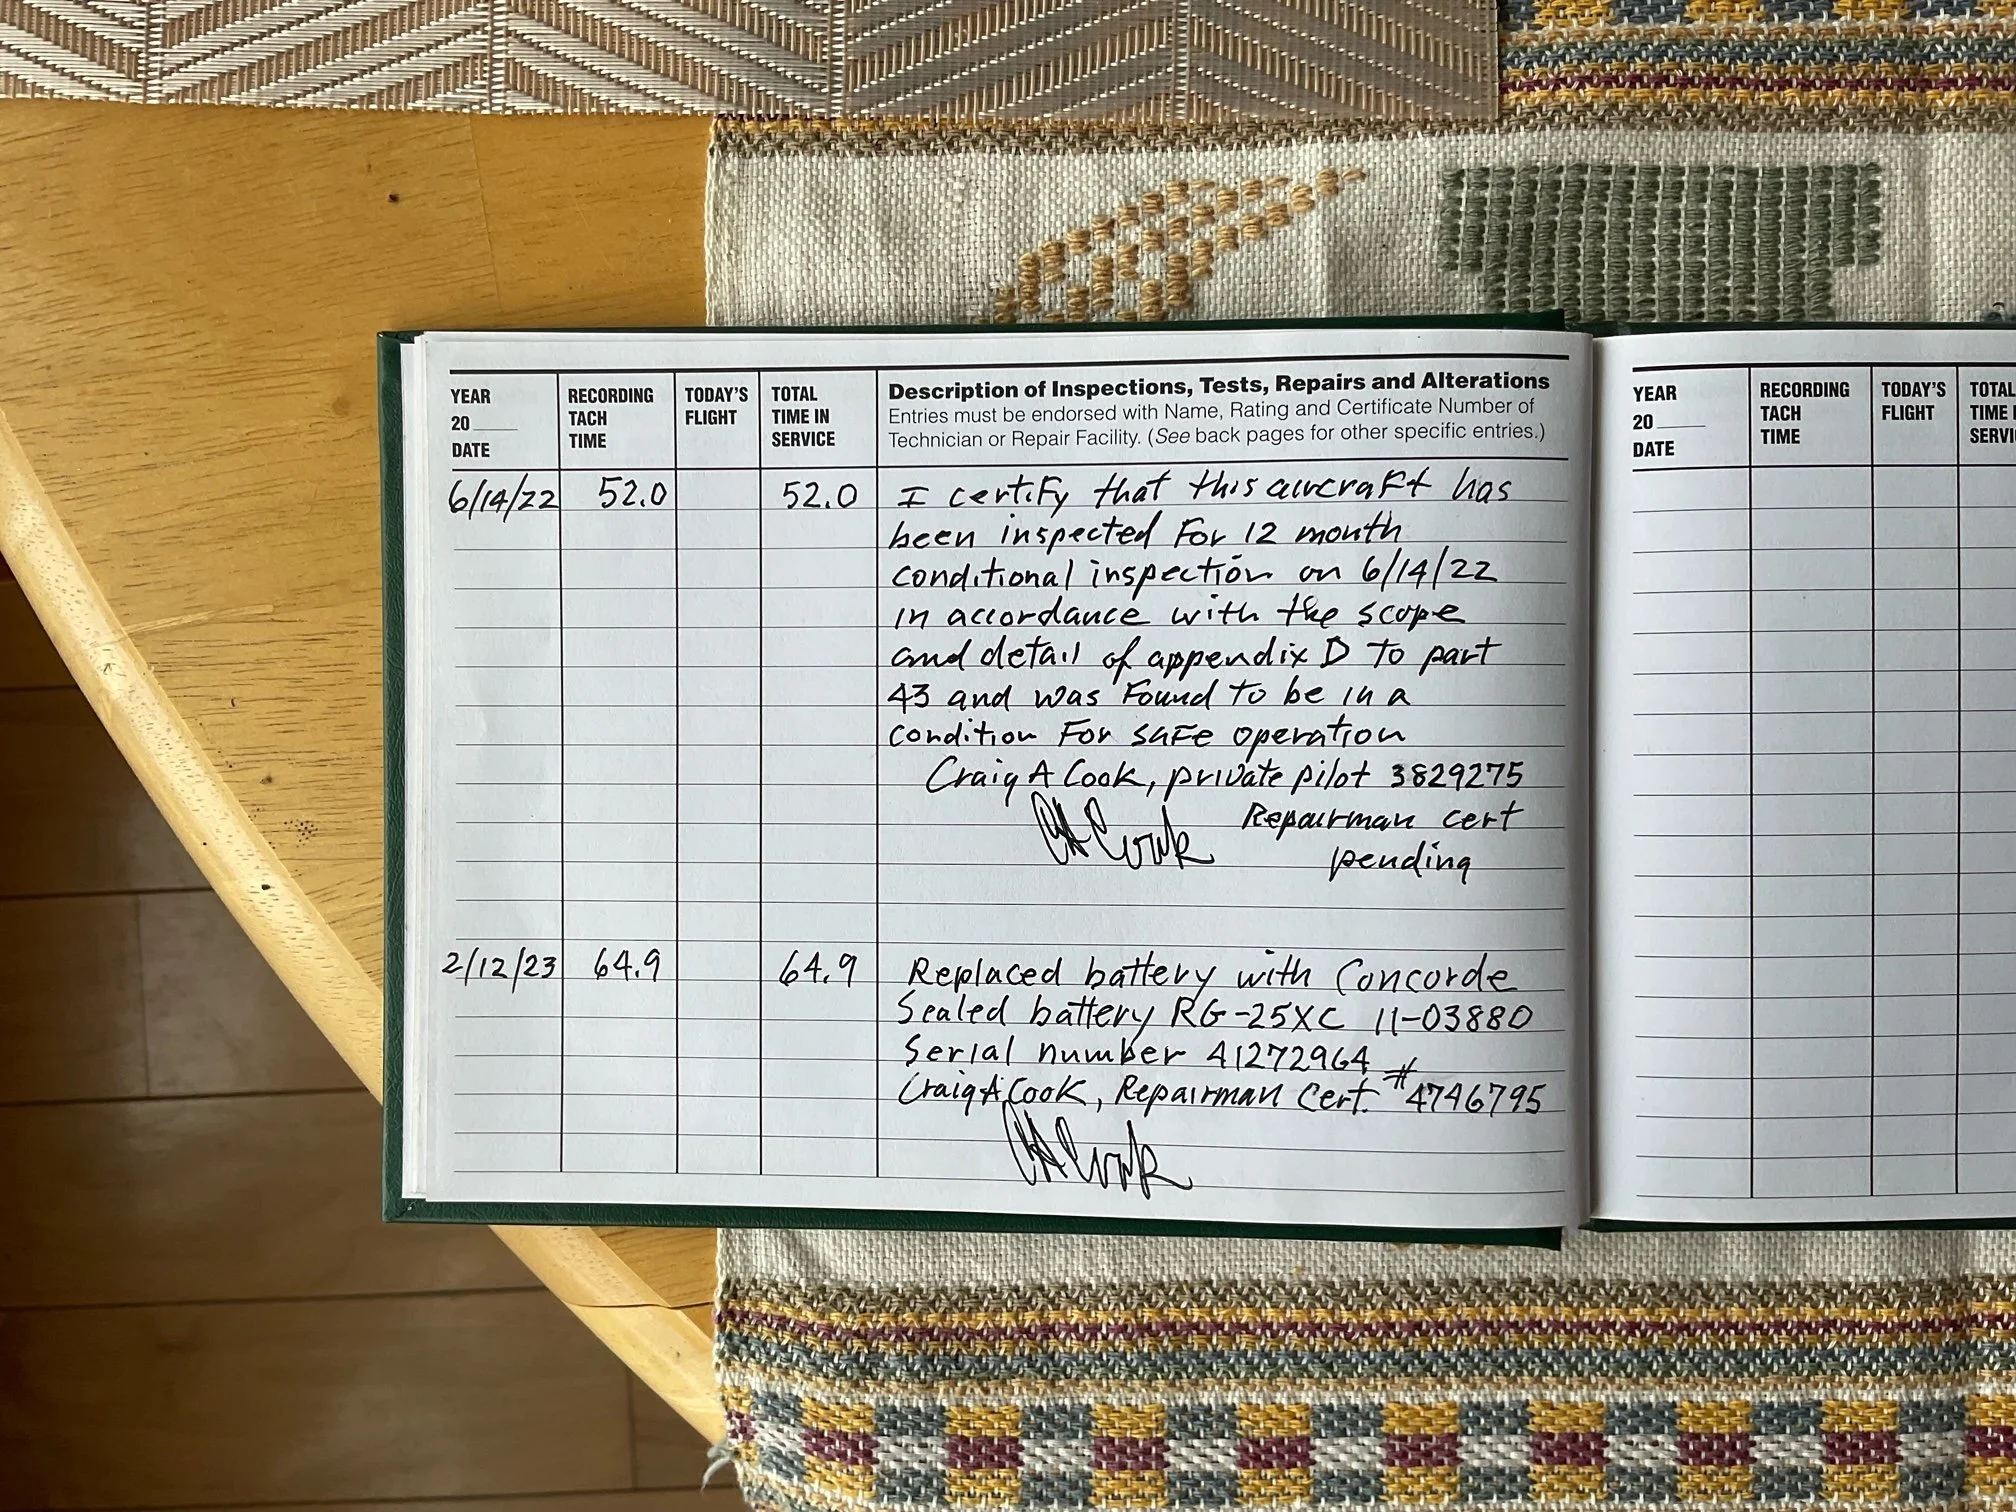 YEAR
20____
DATE
RECORDING
TACH
TIME
TODAY'S
FLIGHT
TOTAL
TIME IN
SERVICE
Description of Inspections, Tests, Repairs and Alterations
Entries must be endorsed with Name, Rating and Certificate Number of
Technician or Repair Facility. (See back pages for other specific entries.)
6/14/22 52.0 52.0 I certify that this aircraft has
been inspected For 12 month
conditional inspection on 6/14/22
in accordance with the scope
and detail of appendix D to part
43 and was found to be in a
condition For safe operation
Craig A Cook, private pilot 3829275
CACook Repairman cert
pending
2/12/23 64.9 64.9 Replaced battery with Concorde
Sealed battery RG-25XC 11-03880
Serial number 41272964
Craig A Cook, Repairman Cert. #4746795
CACook
YEAR
20____
DATE
RECORDING
TACH
TIME
TODAY'S
FLIGHT
TOTAL
TIME
SERVI